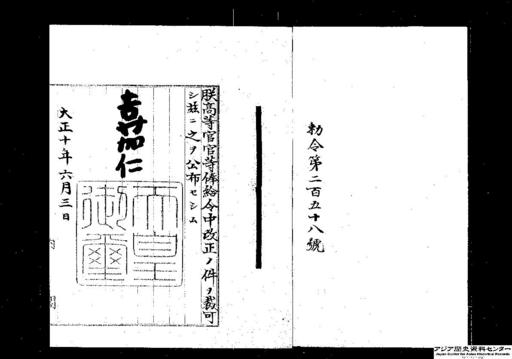 勅令第二百五十八號
朕高等官官等俸給令中改正ノ件ヲ裁可
シ茲ニ之ヲ公布セシム
嘉仁
天皇御璽
大正十年六月三日
内閣
アジア歴史資料センター
Japan Center for Asian Historical Records